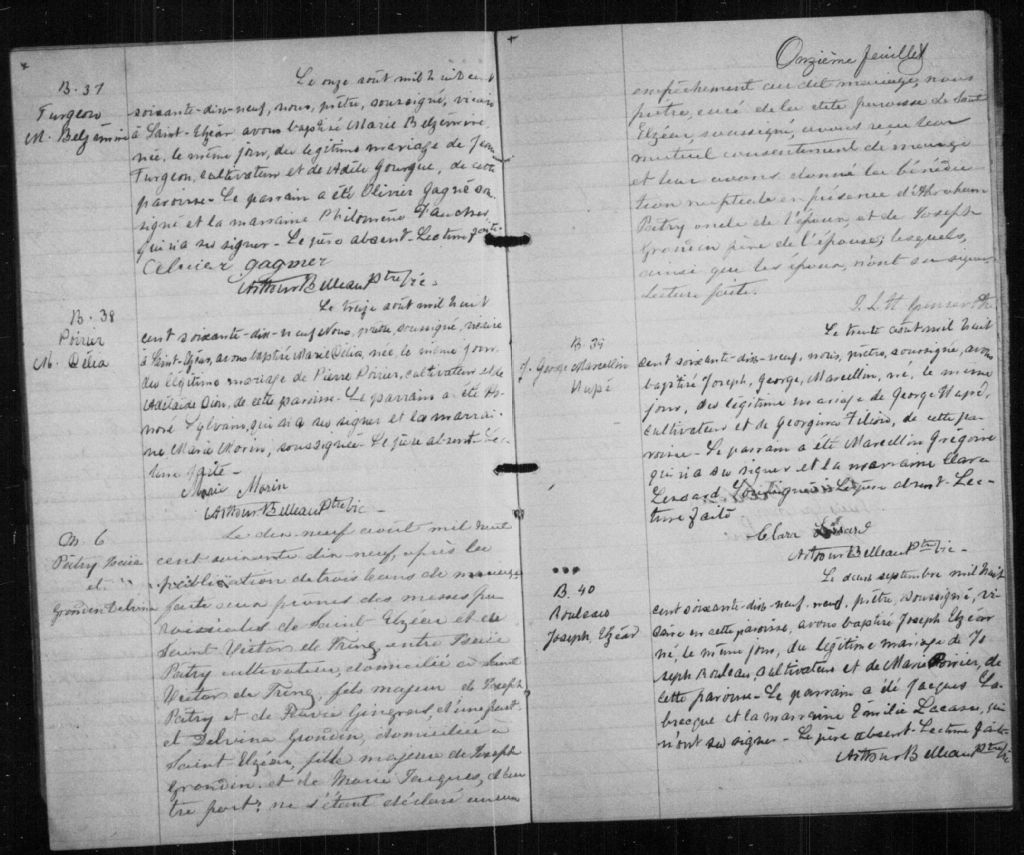 B. 37
Turgeon
M. Belzémire
Le onze août mil huit cent
soixante-dix-neuf, nous, prêtre, soussigné, vicaire
à Saint-Elzéar avons baptisé Marie Belzémire,
née, le même jour, du légitime mariage de Jean
Turgeon, cultivateur et de Adèle Gourgue, de cette
paroisse - Le parrain a été Olivier Gagné sous
signé et la marraine Philomène Faucher
qui n'a su signer - Le père absent - Lecture faite -
Celivier gagner
Arthur Belleau Ptre vic.
B. 38
Poirier
M. Délia
Le treize août mil huit
cent soixante-dix-neuf Nous, prêtre soussigné, vicaire
à Saint-Elzéar, avons baptisé Marie Délia, née, le même jour,
du légitime mariage de Pierre Poirier, cultivateur et de
Adélaïde Dion, de cette paroisse - Le parrain a été Ho-
noré Sylvain, qui n'a su signer et la marrai-
ne Marie Morin, soussignée - Le père absent - Lec-
ture faite -
Marie Morin
Arthur Belleau Ptre vic -
M. 6
Pâtry Isaïe
et
Grondin Delvina
Le dix neuf août mil huit
cent soixante dix-neuf, après la
publication de trois bans de mariage
faite aux prônes des messes pa-
roissiales de Saint Elzéar et de
Saint Victor de Tring entre Isaïe
Pâtry cultivateur, domicilié à Saint
Victor de Tring, fils majeur de Joseph
Pâtry et de Gingras, d'une part
et Delvina Grondin, domiciliée à
Saint Elzéar, fille majeure de Joseph
Grondin et de Marie Jacques, d'au-
tre part; ne s'étant déclaré aucun
Onzième feuillet
empêchement au dit mariage, nous
prêtre, curé de la dite paroisse de Saint
Elzéar, soussigné, avons reçu leur
mutuel consentement de mariage
et leur avons donné la bénédic-
tion nuptiale en présence d'Abraham
Pâtry oncle de l'époux, et de Joseph
Grondin père de l'épouse; lesquels,
ainsi que les époux, n'ont su signer
Lecture faite.
J. L. H.
B. 39
J. George Marcellin
Nupé
Le trente août mil huit
cent soixante-dix-neuf, nous, prêtre, soussigné, avons
baptisé Joseph, George, Marcellin, né, le même
jour, du légitime mariage de George Nupé,
cultivateur et de Georgina Filion, de cette pa-
roisse - Le parrain a été Marcellin Grégoire
qui n'a su signer et la marraine Clara
Lessard soussignée - Le père absent - Lec-
ture faite
Clara Lessard
Arthur Belleau Ptre vic -
B. 40
Rouleau
Joseph Elzéar
Le deux septembre mil huit
cent soixante-dix-neuf, neuf, prêtre, soussigné, vi-
caire en cette paroisse, avons baptisé Joseph Elzéar
né, le même jour, du légitime mariage de Jo-
seph Rouleau, cultivateur et de Marie Poirier, de
cette paroisse - Le parrain a été Jacques La-
brecque et la marraine Émilie Lacasse, qui
n'ont su signer - Le père absent - Lecture faite
Arthur Belleau Ptre vic